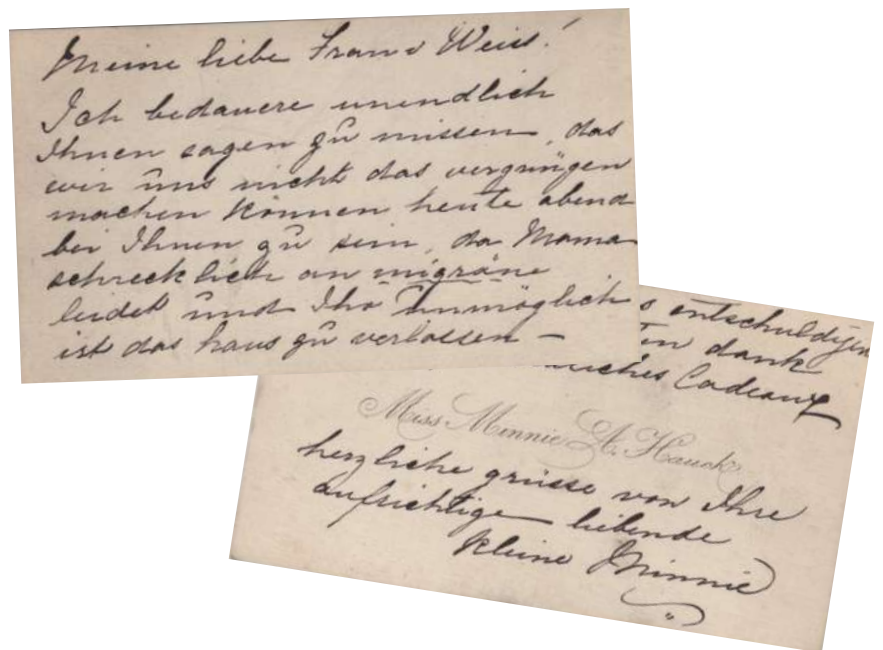 Meine liebe Frau v Weiss!
Ich bedauere unendlich
Ihnen sagen zu müssen, das
wir uns nicht das vergnügen
machen können heute abend
bei Ihnen zu sein, da Mama
schrecklich an migräne
leidet und Ihr unmöglich
ist das haus zu verlassen –
entschuldigen
dank
Cadeaux
Miss Minnie A. Hauck
herzliche grüsse von Ihre
aufrichtige liebende
kleine Minnie